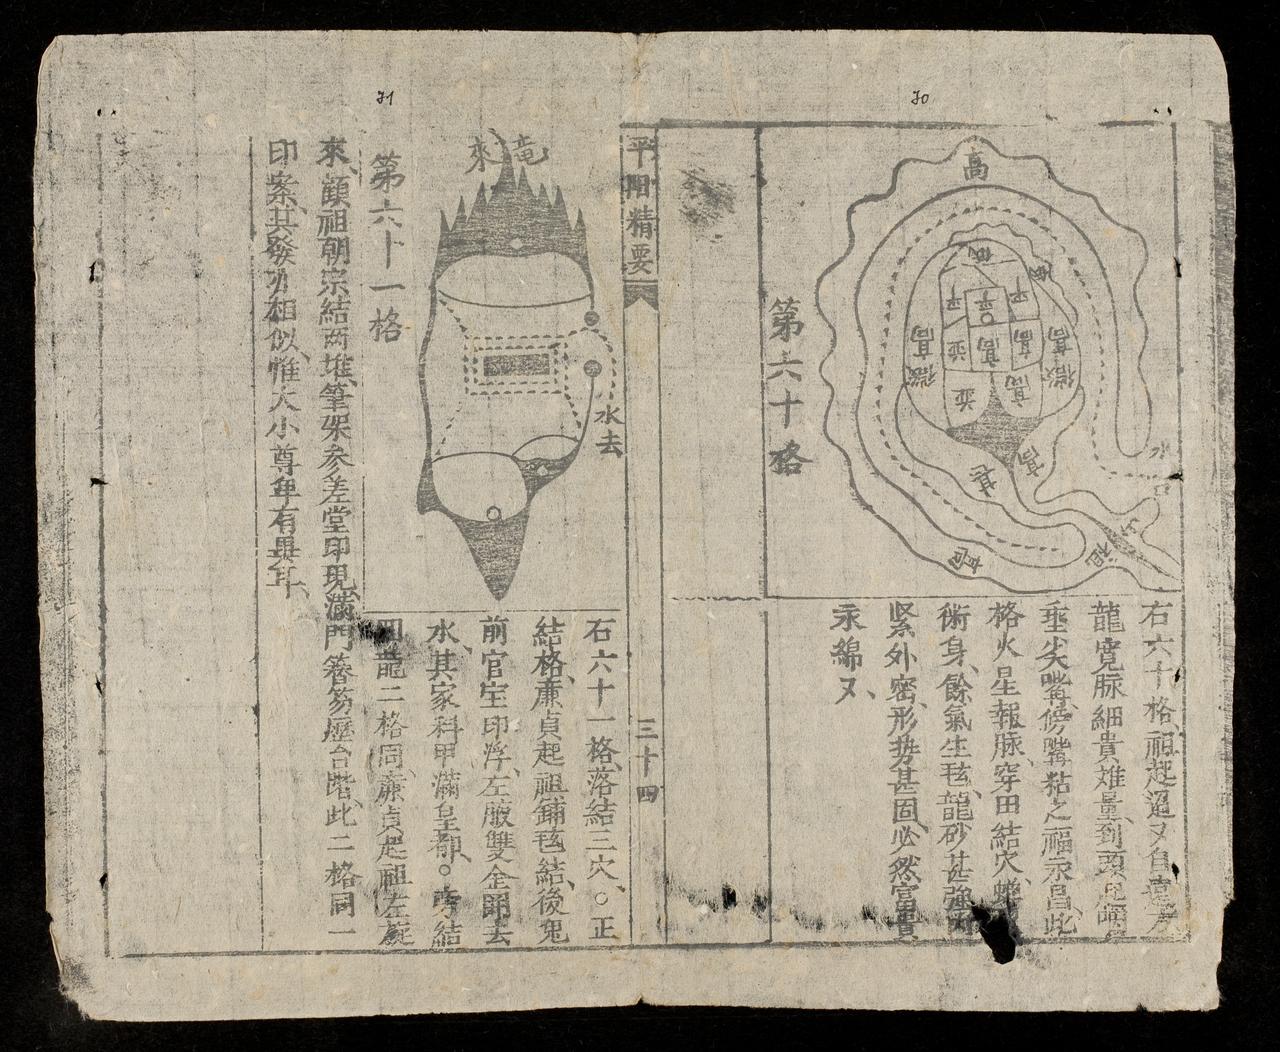 30
高
第六十格
水口
祖
右六十格、祖起逶又自
龍寬脉細貴难量、到頭
垂尖嘴傍嘴粘之福永昌、此
格火星報脉、穿田結穴、蟬
術身、餘氣生毡、龍砂甚強、內
緊外密、形势甚固、必然富貴
永綿又、
平阳精要
三十四
31
竜來
水去
第六十一格
右六十一格、落結三穴、○正
結格、亷貞起祖、鋪毡結、後鬼
前官宝印浮、左廠雙金歸去
水、其家科甲滿皇都、○旁結
回龍二格同、亷貞起祖左旋
來、顧祖朝宗結両堆、筆架参差堂印現、滿門簪笏歷台階、此二格同一
印案、其發亦相似、惟大小尊卑有異耳、